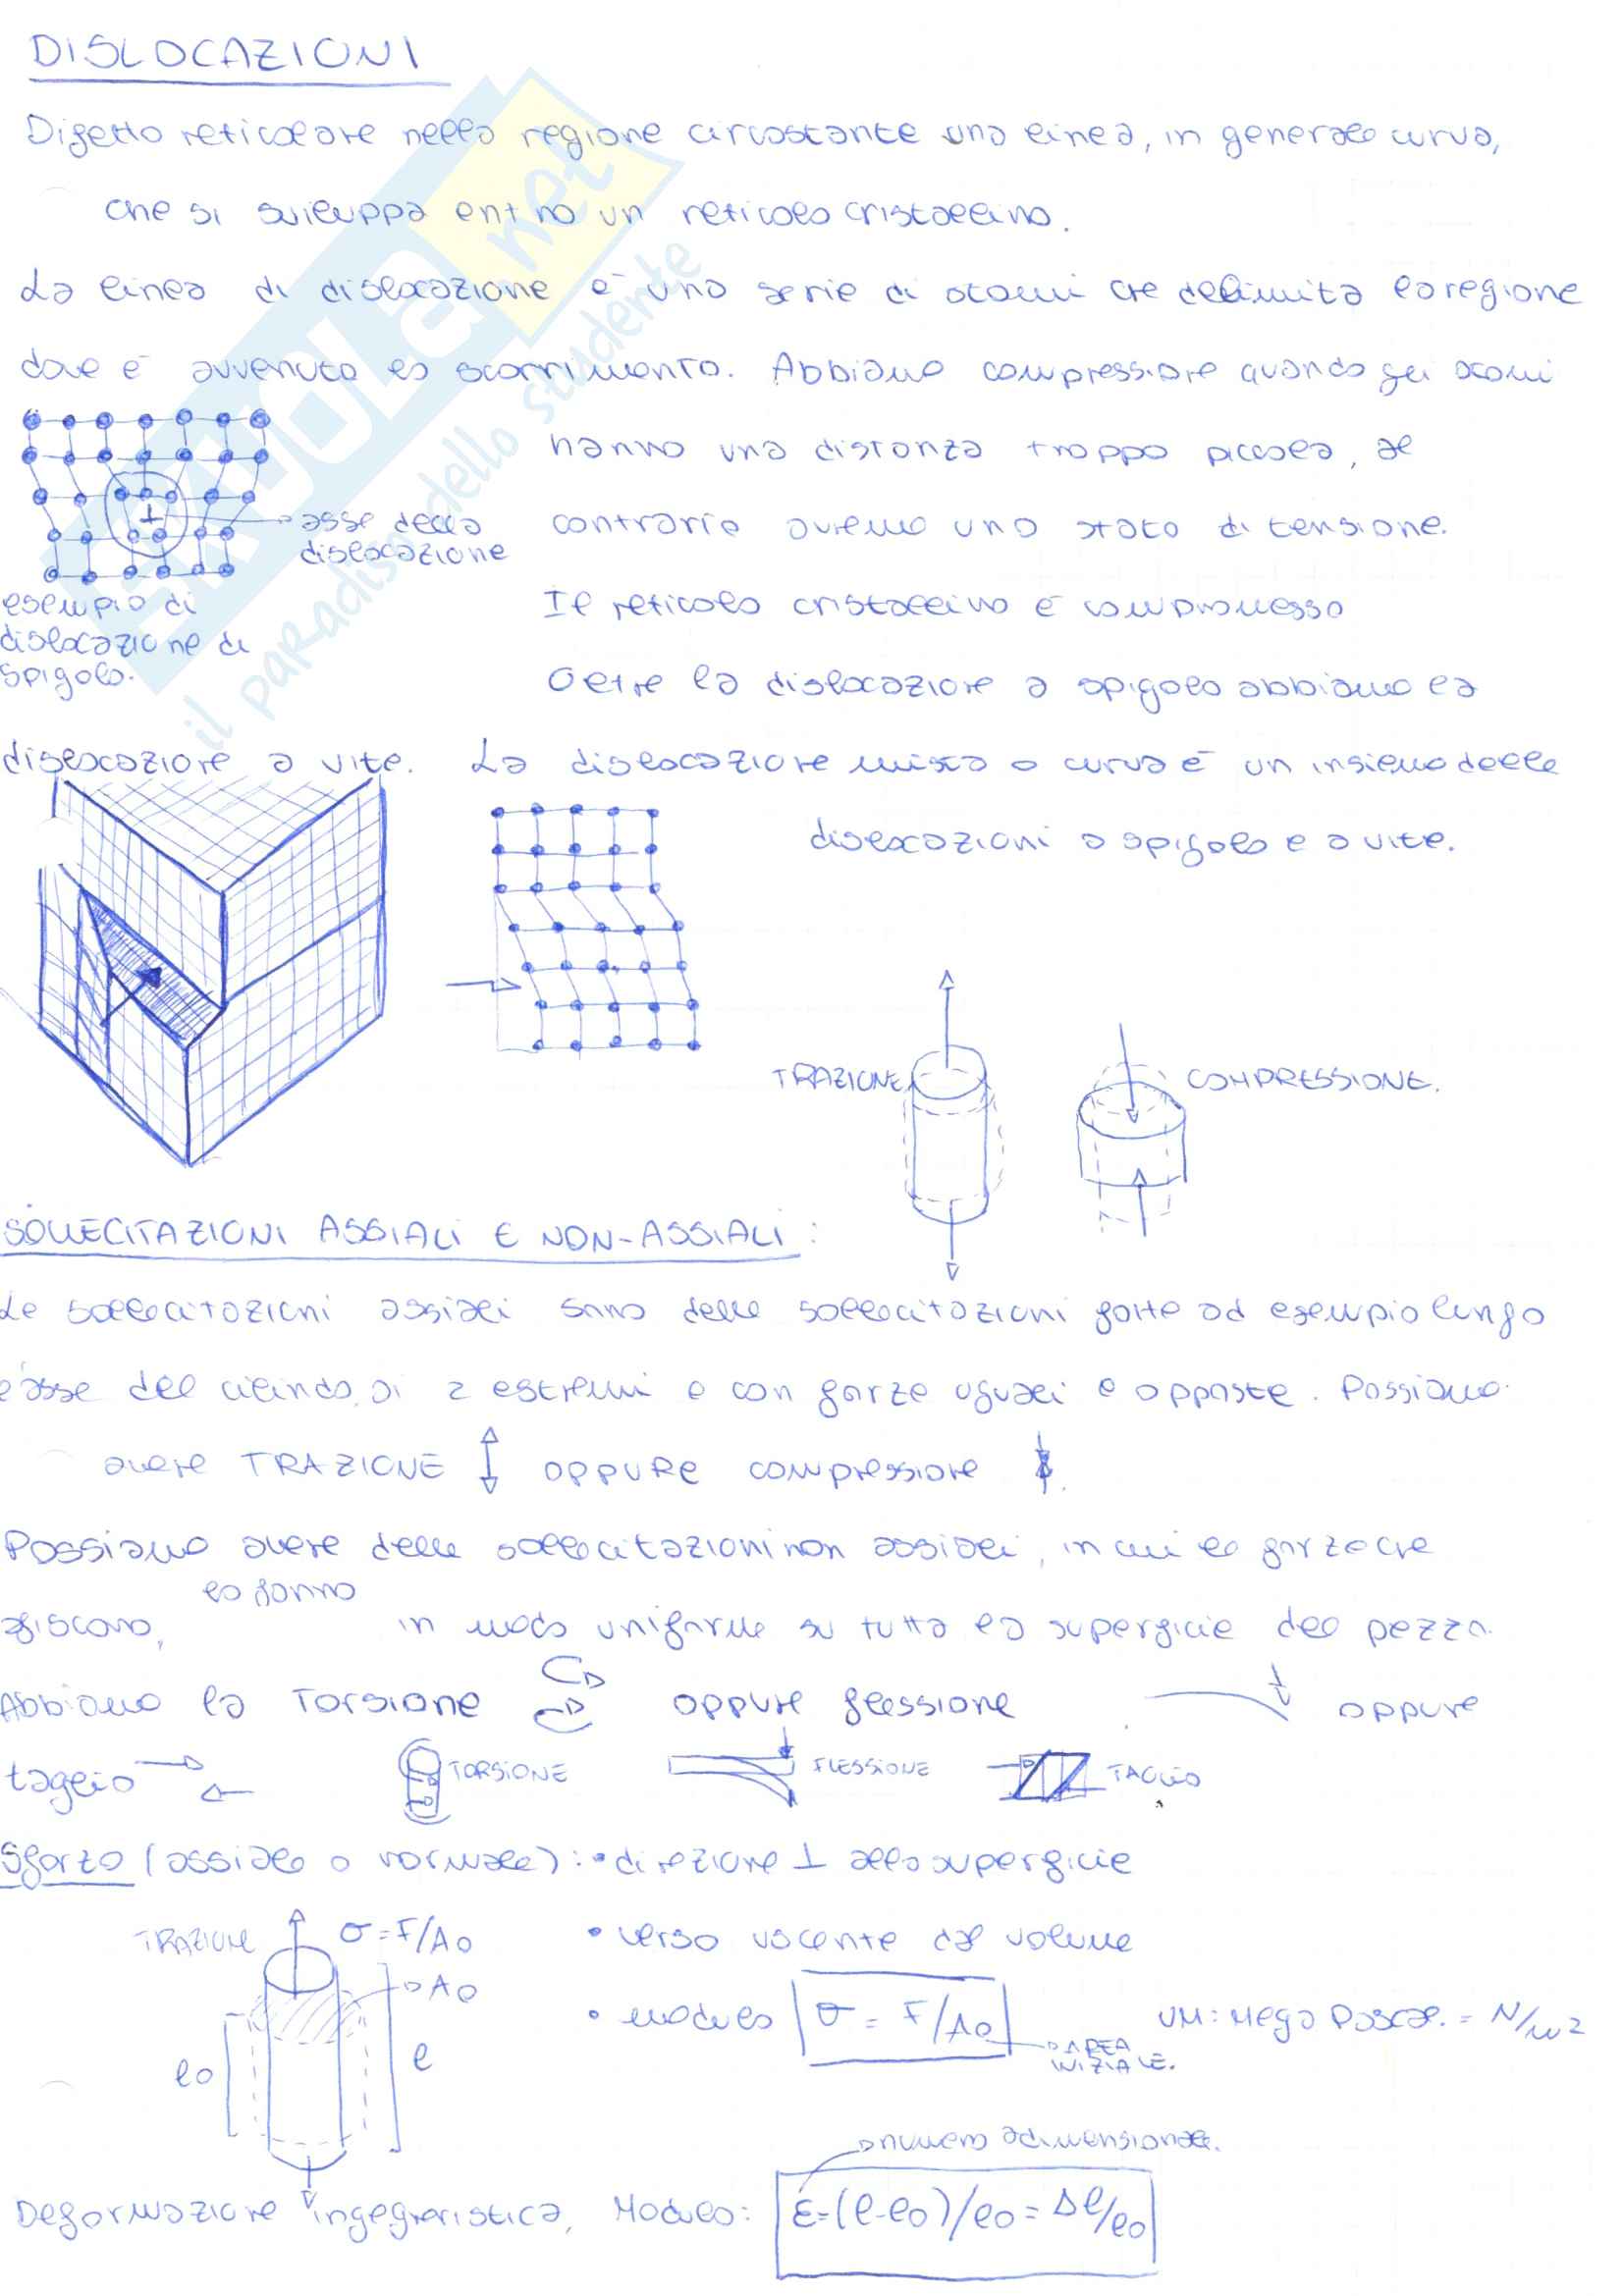 DISLOCAZIONI
Difetto reticolare nella regione circostante una linea, in generale curva,
che si sviluppa entro un reticolo cristallino.
La linea di dislocazione è una serie di atomi che delimita la regione
dove è avvenuto lo scorrimento. Abbiamo compressione quando gli atomi
hanno una distanza troppo piccola, al
contrario avremo uno stato di tensione.
asse della
dislocazione
esempio di
dislocazione di
spigolo.
Il reticolo cristallino è compromesso
Oltre la dislocazione a spigolo abbiamo la
dislocazione a vite. La dislocazione mista o curva è un insieme delle
dislocazioni a spigolo e a vite.
TRAZIONE
COMPRESSIONE.
SOLLECITAZIONI ASSIALI E NON-ASSIALI:
Le sollecitazioni assiali sono delle sollecitazioni fatte ad esempio lungo
l'asse del cilindo, ai 2 estremi e con forze uguali e opposte. Possiamo
avere TRAZIONE oppure compressione.
Possiamo avere delle sollecitazioni non assiali, in cui le forze che
lo fanno
agiscono, in modo uniforme su tutta la superficie del pezzo.
Abbiamo la Torsione oppure flessione oppure
taglio
TORSIONE
FLESSIONE
TAGLIO
Sforzo (assiale o normale): • direzione ⊥ alla superficie
TRAZIONE
σ=F/A0
A0
l0
l
• verso uscente dal volume
• modulo σ = F/A0
AREA
INIZIALE.
UM: Mega Pascal. = N/m²
numero adimensionale.
Deformazione ingegneristica, Modulo: ε=(l-l0)/l0 = Δl/l0
SKUOLA.net
il paradiso dello studente